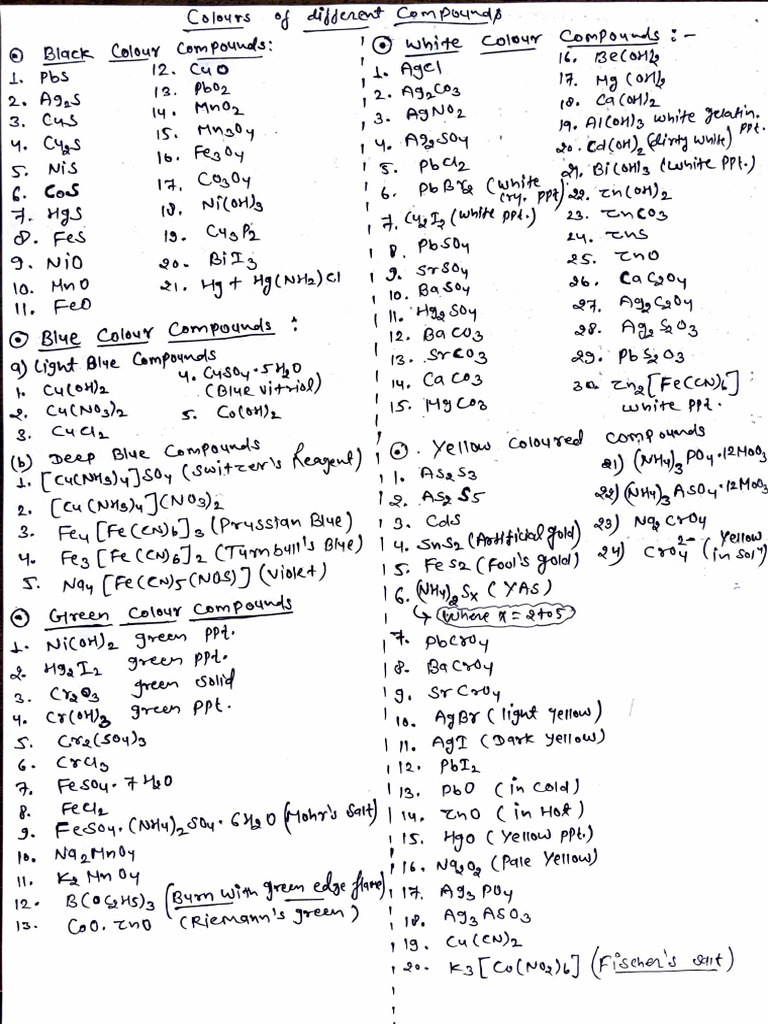 Colours of different Compounds
⊙ Black Colour Compounds:
1. PbS
2. Ag2S
3. CuS
4. Cu2S
5. NiS
6. CoS
7. HgS
8. FeS
9. NiO
10. MnO
11. FeO
12. CuO
13. PbO2
14. MnO2
15. Mn3O4
16. Fe3O4
17. Co3O4
18. Ni(OH)3
19. Cu3P2
20. BiI3
21. Hg + Hg(NH2)Cl
⊙ Blue Colour Compounds :
a) Light Blue Compounds
1. Cu(OH)2
2. Cu(NO3)2
3. CuCl2
4. CuSO4·5H2O
(Blue vitriol)
5. Co(OH)2
(b) Deep Blue Compounds
1. [Cu(NH3)4]SO4 (Switzer's Reagent)
2. [Cu(NH3)4](NO3)2
3. Fe4[Fe(CN)6]3 (Prussian Blue)
4. Fe3[Fe(CN)6]2 (Turnbull's Blue)
5. Na4[Fe(CN)5(NOS)] (Violet)
⊙ Green Colour Compounds
1. Ni(OH)2 green ppt.
2. Hg2I2 green ppt.
3. Cr2O3 green solid
4. Cr(OH)3 green ppt.
5. Cr2(SO4)3
6. CrCl3
7. FeSO4·7H2O
8. FeCl2
9. FeSO4·(NH4)2SO4·6H2O (Mohr's salt)
10. Na2MnO4
11. K2MnO4
12. B(OC2H5)3 (Burn with green edge flame)
13. CoO.ZnO (Riemann's green)
⊙ White Colour Compounds :-
1. AgCl
2. Ag2CO3
3. AgNO2
4. Ag2SO4
5. PbCl2
6. PbBr2 (white cry. ppt)
7. Cu2I2 (white ppt.)
8. PbSO4
9. SrSO4
10. BaSO4
11. Hg2SO4
12. BaCO3
13. SrCO3
14. CaCO3
15. MgCO3
16. Be(OH)2
17. Mg(OH)2
18. Ca(OH)2
19. Al(OH)3 white gelatin. ppt.
20. Cd(OH)2 (dirty white)
21. Bi(OH)3 (white ppt.)
22. Zn(OH)2
23. ZnCO3
24. ZnS
25. ZnO
26. CaC2O4
27. Ag2C2O4
28. Ag2S2O3
29. PbS2O3
30. Zn2[Fe(CN)6]
white ppt.
⊙ . Yellow coloured compounds
1. As2S3
2. As2S5
3. CdS
4. SnS2 (Artificial gold)
5. FeS2 (Fool's gold)
6. (NH4)2Sx (YAS)
↳ (where x = 2 to 5)
7. PbCrO4
8. BaCrO4
9. SrCrO4
10. AgBr (light yellow)
11. AgI (Dark yellow)
12. PbI2
13. PbO (in cold)
14. ZnO (in Hot)
15. HgO (Yellow ppt.)
16. Na2O2 (Pale Yellow)
17. Ag3PO4
18. Ag3ASO3
19. Cu(CN)2
20. K3[Co(NO2)6] (Fischer's salt)
21) (NH4)3PO4·12MoO3
22) (NH4)3ASO4·12MoO3
23) Na2CrO4
24) CrO4 2- (Yellow in soln)